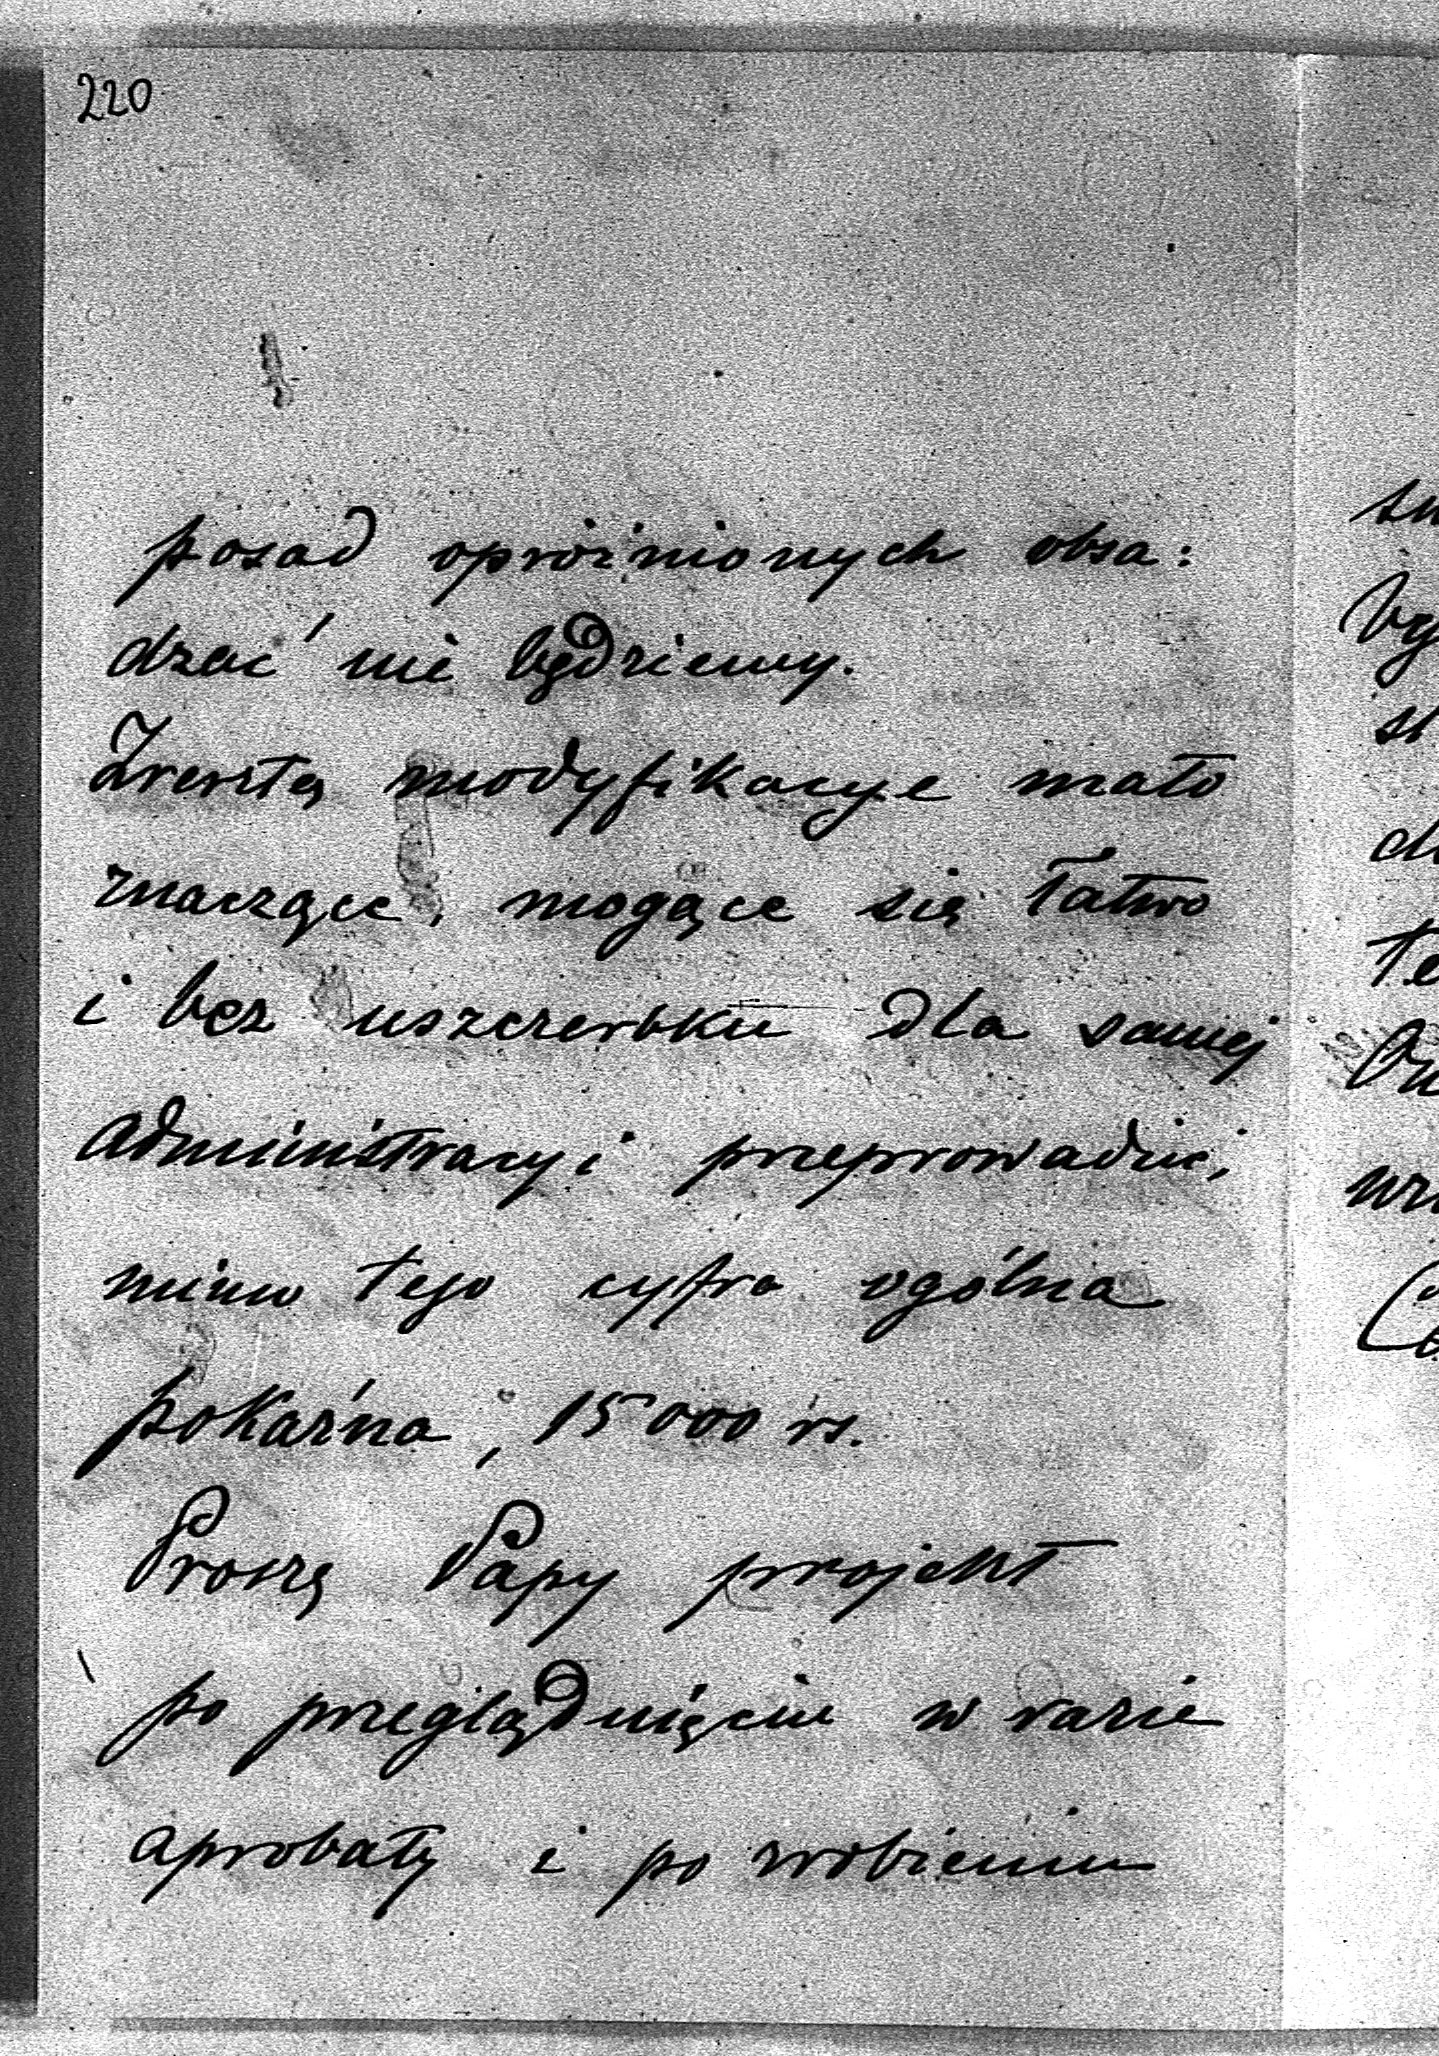 220
posad opróżnionych obsa:
dzać nie będziemy.
Zresztą modyfikacye mało
znaczące, mogące się łatwo
i bez uszczerbku dla samej
administracyi przeprowadzić,
mimo tego cyfra ogólna
pokaźna, 15000 rs.
Proszę Papy projekt
po przeglądnięciu w razie
aprobaty i po zrobieniu